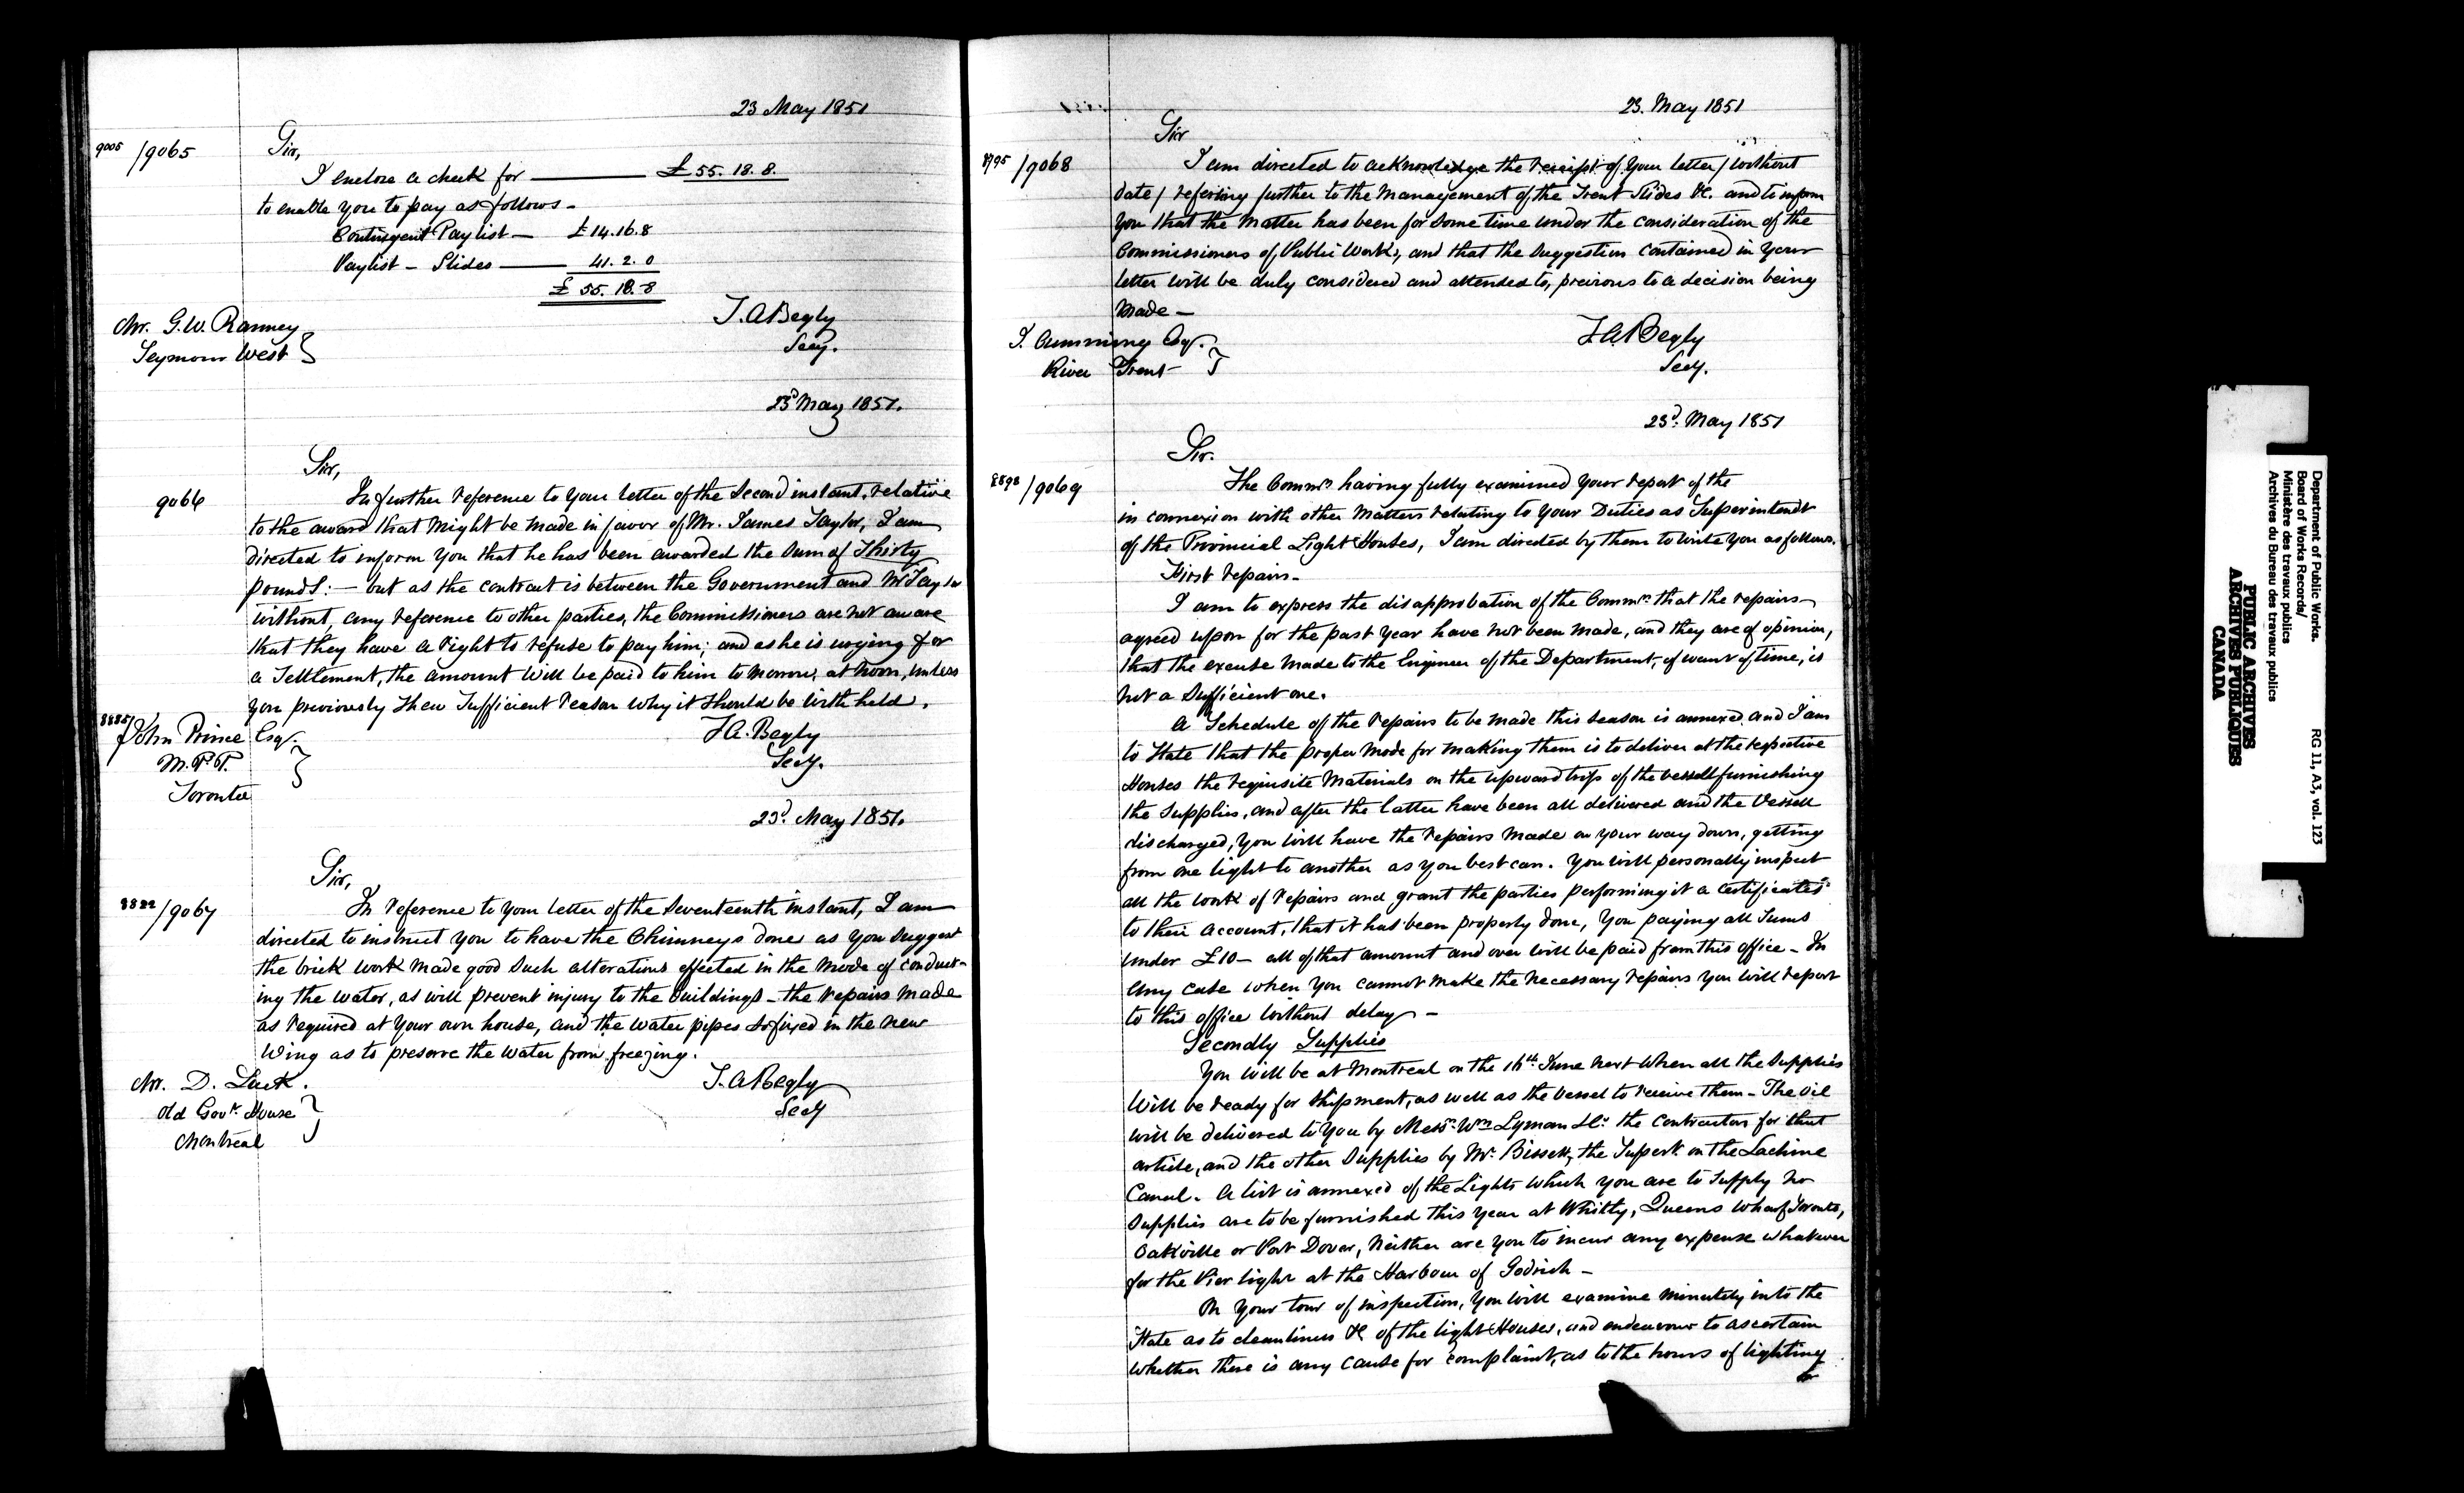 23 May 1851
9005/9065
Sir,
I enclose a check for — £55.18.8.
to enable you to pay as follows -
Contingent Pay list — £14.16.8
Paylist — Slides — 41.2.0
£55.18.8
T. A Begly
Secy.
Mr. G. W. Ranney
Seymour West
23d May 1851.
Sir,
9066
In further reference to your letter of the Second instant, relative
to the award that might be made in favor of Mr. James Taylor, I am
directed to inform you that he has been awarded the sum of Thirty
pounds: — but as the contract is between the Government and Mr Taylor
without, any reference to other parties, the Commissioners are not aware
that they have a right to refuse to pay him; and as he is urging for
a Settlement, the amount will be paid to him to morrow, at noon, unless
you previously shew Sufficient reason why it should be withheld.
8885/
John Prince Esqr.
M.P.P.
Toronto
T. A. Begly
Secy.
23d. May 1851.
Sir,
8822/9067
In reference to your letter of the Seventeenth instant, I am
directed to instruct you to have the Chimneys done as you suggest
the brick work made good such alterations effected in the mode of conduct-
ing the water, as will prevent injury to the buildings - the repairs made
as required at your own house, and the water pipes so fixed in the new
Wing as to preserve the water from freezing.
Mr. D. Luck.
Old Govt. House
Montreal
T. A Begly
Secy
23. May 1851
Sir
8795/9068
I am directed to acknowledge the receipt of your letter / without
date / referring further to the management of the Trent Slides &c. and to inform
you that the matter has been for some time under the consideration of the
Commissioners of Public Works, and that the suggestion contained in your
letter will be duly considered and attended to, previous to a decision being
made —
T. A Begly
Secy.
J. Cumming Esqr.
River Trent
23d. May 1851
Sir.
8898/9069
The Commrs. having fully examined your report of the
in connexion with other matters relating to your Duties as Superintendt
of the Provincial Light Houses, I am directed by them to write you as follows.
First repairs -
I am to express the disapprobation of the Commrs. that the repairs
agreed upon for the past year have not been made, and they are of opinion,
that the excuse made to the Engineer of the Department, of want of time, is
not a sufficient one.
A Schedule of the repairs to be made this season is annexed and I am
to State that the proper mode for making them is to deliver at the respective
Houses the requisite Materials on the upward trip of the vessel furnishing
the Supplies, and after the latter have been all delivered and the Vessel
discharged, you will have the repairs made on your way down, getting
from one light to another as you best can. You will personally inspect
all the work of repairs and grant the parties performing it a certificate
to their account, that it has been properly done, you paying all Sums
under £10 — all of that amount and over will be paid from this office - In
any case when you cannot make the necessary repairs you will report
to this office without delay -
Secondly Supplies
You will be at Montreal on the 16th June next when all the supplies
Will be ready for shipment, as well as the vessel to receive them - The oil
will be delivered to you by Messrs. Wm Lyman & Co. the contractors for that
article, and the other supplies by Mr. Bissett, the Supert. on the Lachine
Canal. A list is annexed of the Lights which you are to supply no
supplies are to be furnished this year at Whitby, Queens wharf Toronto,
Oakville or Port Dover, neither are you to incur any expense whatever
for the Pier light at the Harbour of Godrich -
On your tour of inspection, you will examine minutely into the
State as to cleanliness &c of the light Houses, and endeavour to ascertain
whether there is any cause for complaint, as to the hours of lighting
Department of Public Works.
Board of Works Records/
Ministère des travaux publics
Archives du Bureau des travaux publics
RG 11, A3, vol. 123
PUBLIC ARCHIVES
ARCHIVES PUBLIQUES
CANADA